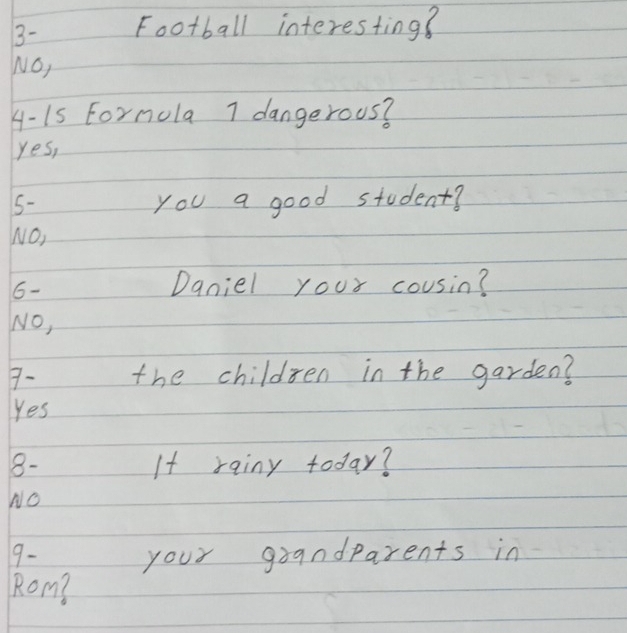 3- Football interesting?
NO,
4-Is Formula 1 dangerous?
yes,
5- you a good student?
NO,
6- Daniel your cousin?
NO,
7- the children in the garden?
Yes
8- It rainy today?
NO
9- your grandparents in
Rom?